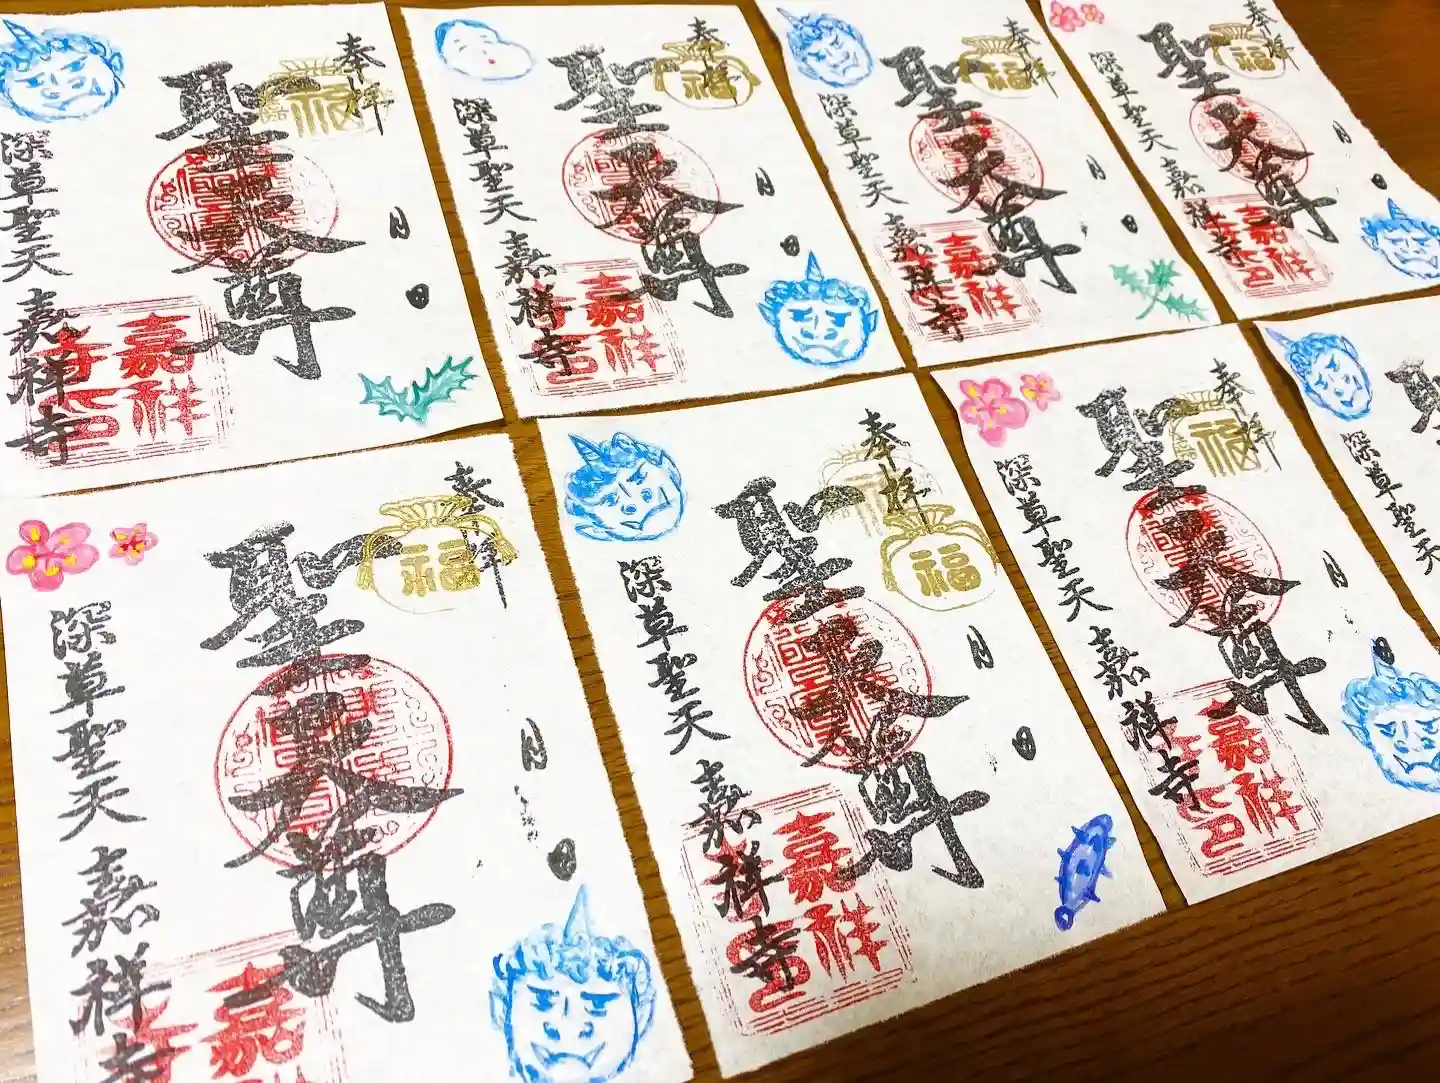 奉拝
福
月 日
聖天尊
深草聖天 嘉祥寺
嘉祥寺印
奉拝
福
月 日
聖天尊
深草聖天 嘉祥寺
嘉祥寺印
奉拝
福
月 日
聖天尊
深草聖天 嘉祥寺
嘉祥寺印
奉拝
福
月 日
聖天尊
深草聖天 嘉祥寺
嘉祥寺印
奉拝
福
月 日
聖天尊
深草聖天 嘉祥寺
嘉祥寺
奉拝
福
福
月 日
聖天尊
深草聖天 嘉祥寺
嘉祥寺印
奉拝
福
月 日
聖天尊
深草聖天 嘉祥寺
嘉祥寺印
深草聖天